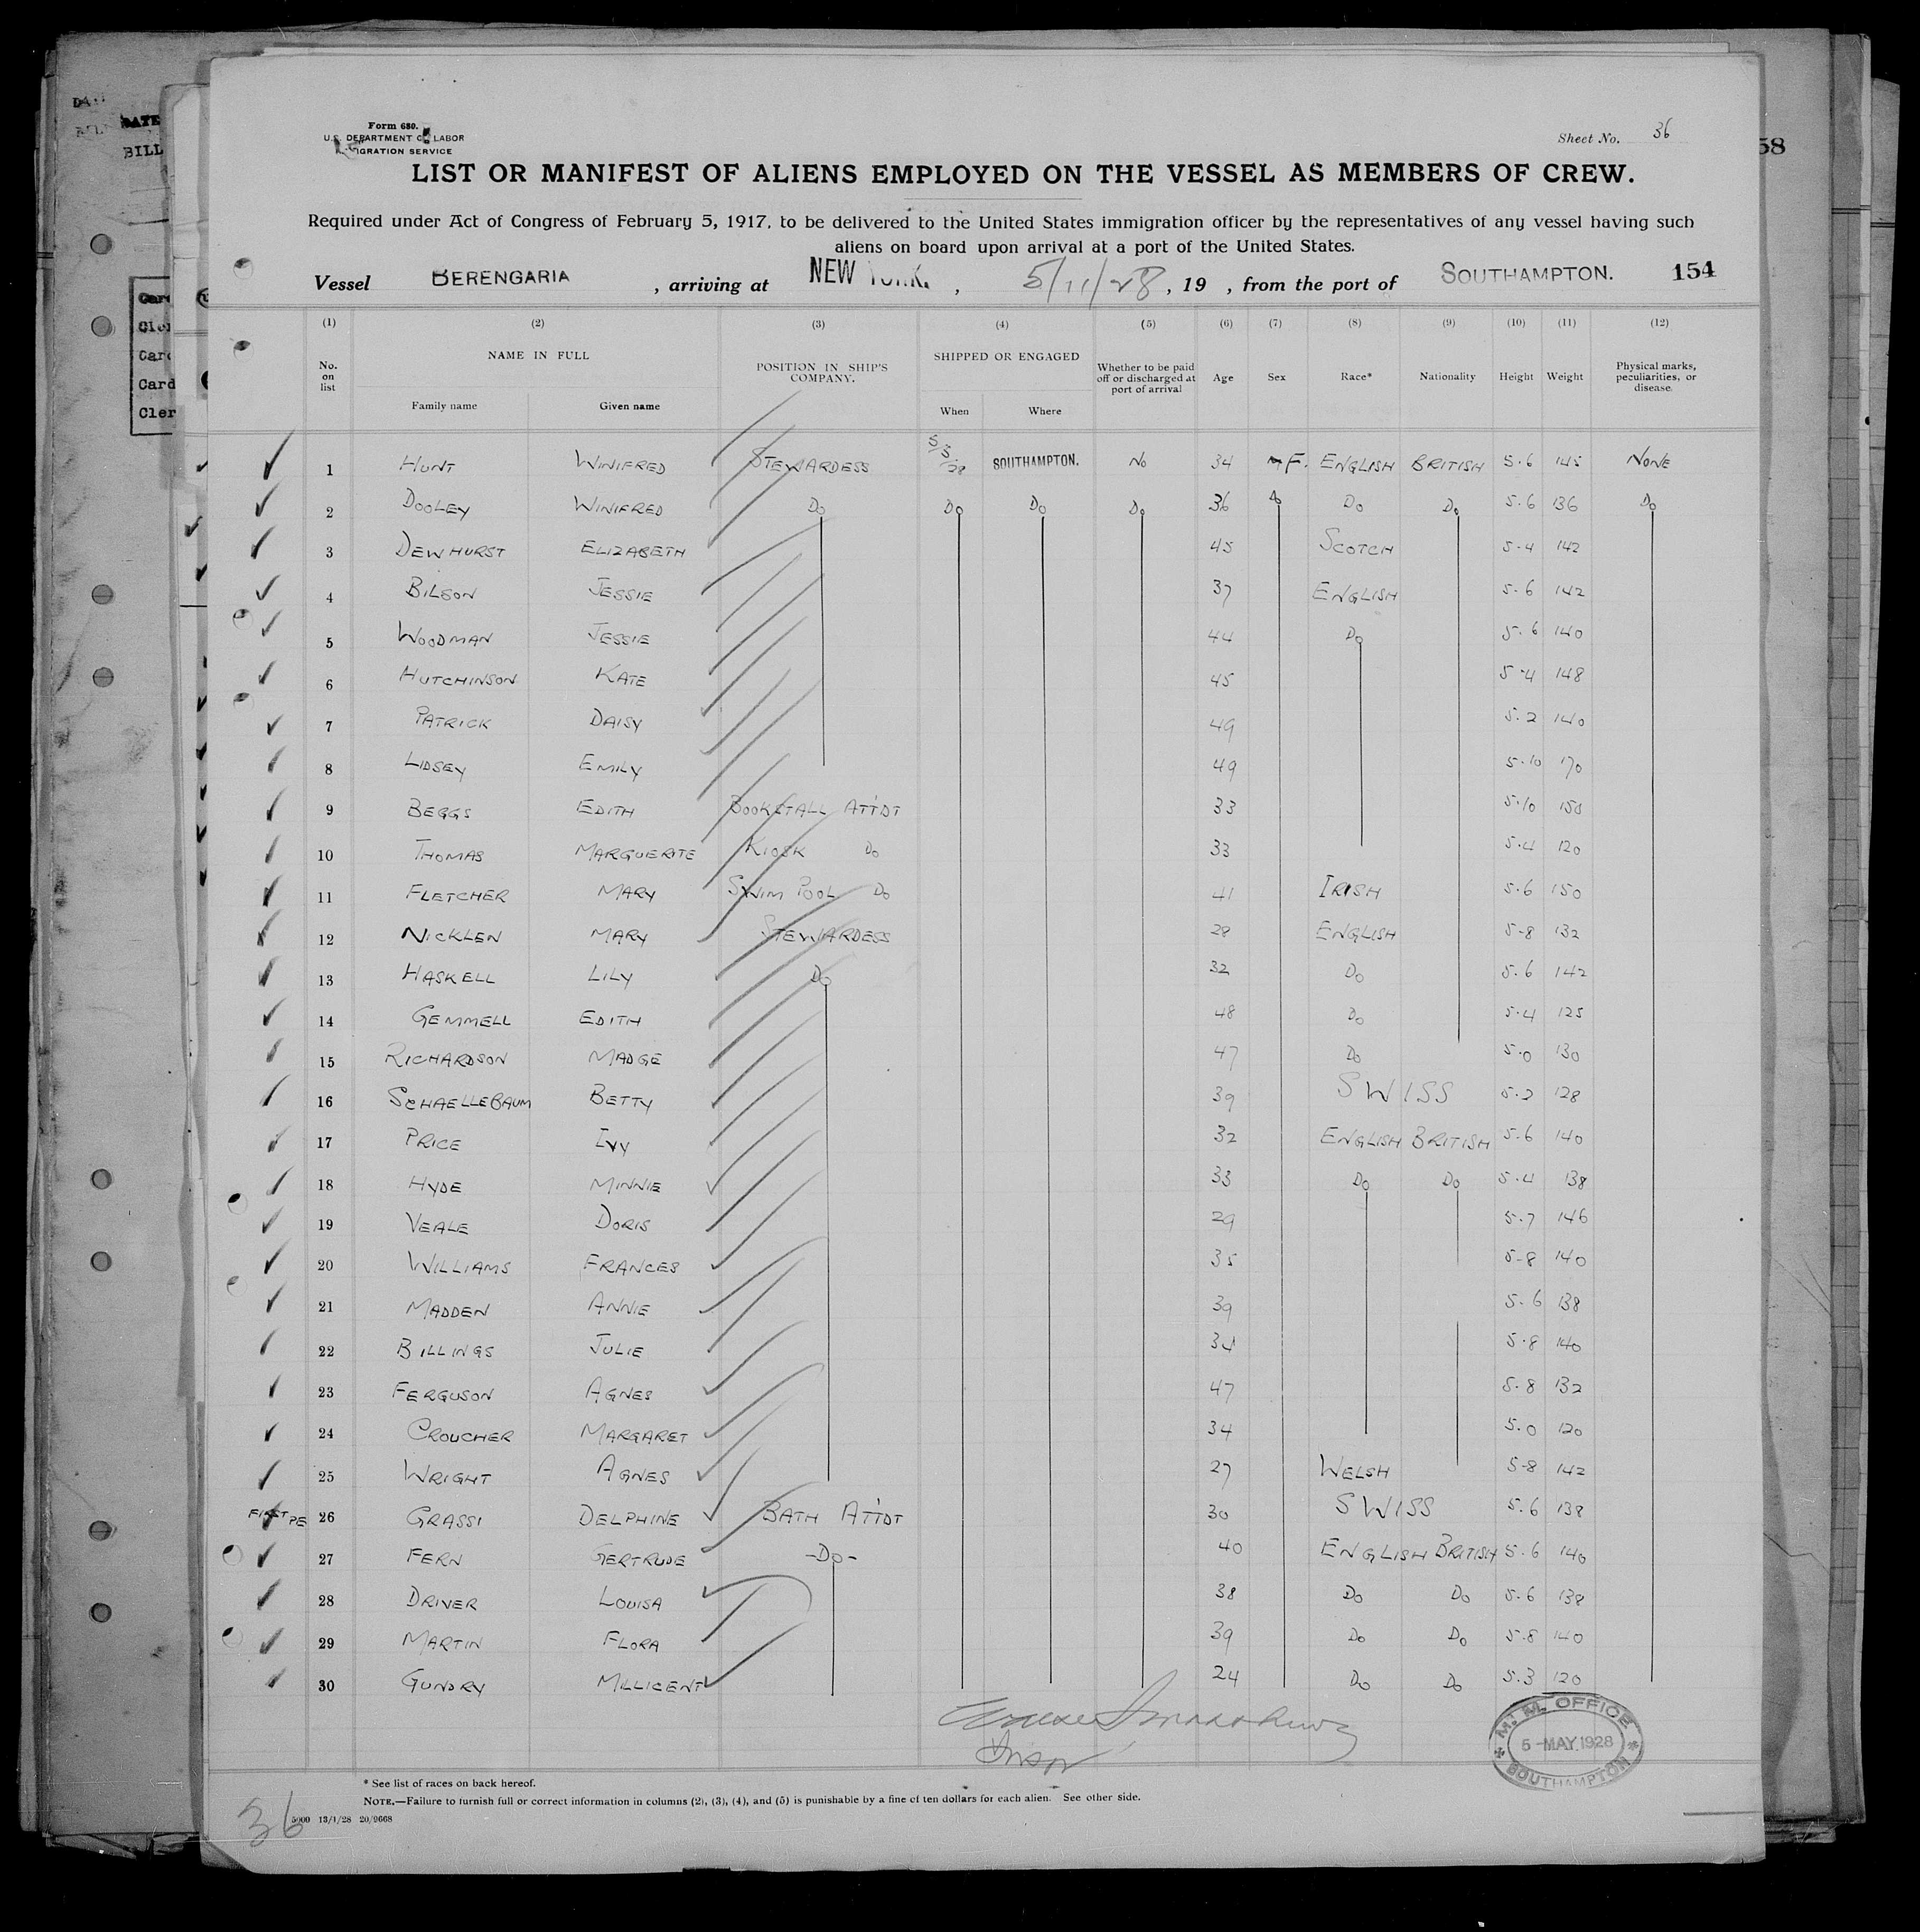 Form 680.
U.S. DEPARTMENT OF LABOR
IMMIGRATION SERVICE
Sheet No. 36
58
DATE
BILL
LIST OR MANIFEST OF ALIENS EMPLOYED ON THE VESSEL AS MEMBERS OF CREW.
Required under Act of Congress of February 5, 1917, to be delivered to the United States immigration officer by the representatives of any vessel having such
aliens on board upon arrival at a port of the United States.
Vessel BERENGARIA, arriving at NEW YORK, 5/11/28, 19 , from the port of SOUTHAMPTON. 154
(1) (2) (3) (4) (5) (6) (7) (8) (9) (10) (11) (12)
No. on list NAME IN FULL Family name Given name POSITION IN SHIP'S COMPANY. SHIPPED OR ENGAGED When Where Whether to be paid off or discharged at port of arrival Age Sex Race* Nationality Height Weight Physical marks, peculiarities, or disease.
1 HUNT WINIFRED STEWARDESS 5/5/28 SOUTHAMPTON. NO 34 F. ENGLISH BRITISH 5.6 145 NONE
2 DOOLEY WINIFRED DO DO DO DO 36 DO DO DO 5.6 136 DO
3 DEWHURST ELIZABETH 45 SCOTCH 5-4 142
4 BILSON JESSIE 37 ENGLISH 5-6 142
5 WOODMAN JESSIE 44 DO 5.6 140
6 HUTCHINSON KATE 45 5-4 148
7 PATRICK DAISY 49 5.2 140
8 LIDSEY EMILY 49 5.10 170
9 BEGGS EDITH BOOKSTALL ATTDT 33 5.10 150
10 THOMAS MARGUERITE KIOSK DO 33 5.4 120
11 FLETCHER MARY SWIM POOL DO 41 IRISH 5.6 150
12 NICKLEN MARY STEWARDESS 28 ENGLISH 5-8 132
13 HASKELL LILY DO 32 DO 5.6 142
14 GEMMELL EDITH 48 DO 5.4 125
15 RICHARDSON MADGE 47 DO 5.0 130
16 SCHAELLEBAUM BETTY 39 SWISS 5.2 128
17 PRICE IVY 32 ENGLISH BRITISH 5.6 140
18 HYDE MINNIE 33 DO DO 5.4 138
19 VEALE DORIS 29 5.7 146
20 WILLIAMS FRANCES 35 5-8 140
21 MADDEN ANNIE 39 5.6 138
22 BILLINGS JULIE 34 5.8 140
23 FERGUSON AGNES 47 5.8 132
24 CROUCHER MARGARET 34 5.0 120
25 WRIGHT AGNES 27 WELSH 5-8 142
FIRST 26 GRASSI DELPHINE BATH ATTDT 30 SWISS 5.6 138
27 FERN GERTRUDE -DO- 40 ENGLISH BRITISH 5.6 140
28 DRIVER LOUISA 38 DO DO 5.6 138
29 MARTIN FLORA 39 DO DO 5.8 140
30 GUNDRY MILLICENT 24 DO DO 5.3 120
M. M. OFFICE
5 -MAY.1928
SOUTHAMPTON
* See list of races on back hereof.
NOTE.—Failure to furnish full or correct information in columns (2), (3), (4), and (5) is punishable by a fine of ten dollars for each alien. See other side.
36
5000 13/1/28 20/9668